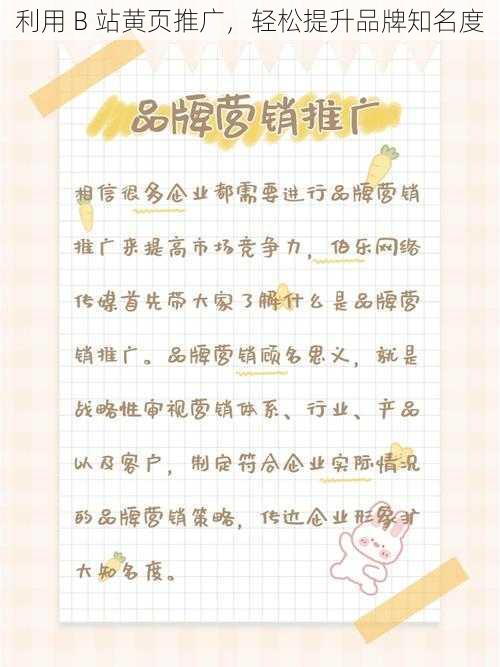 利用 B 站黄页推广，轻松提升品牌知名度
品牌营销推广
相信很多企业都需要进行品牌营销
推广来提高市场竞争力，伯乐网络
传媒首先带大家了解什么是品牌营
销推广。品牌营销顾名思义，就是
战略性审视营销体系、行业、产品
以及客户，制定符合企业实际情况
的品牌营销策略，传达企业形象扩
大知名度。